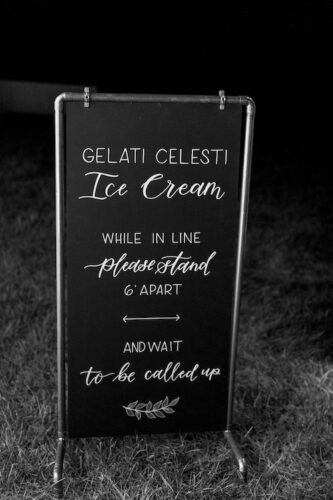 GELATI CELESTI
Ice Cream
WHILE IN LINE
please stand
6' APART
AND WAIT
to be called up